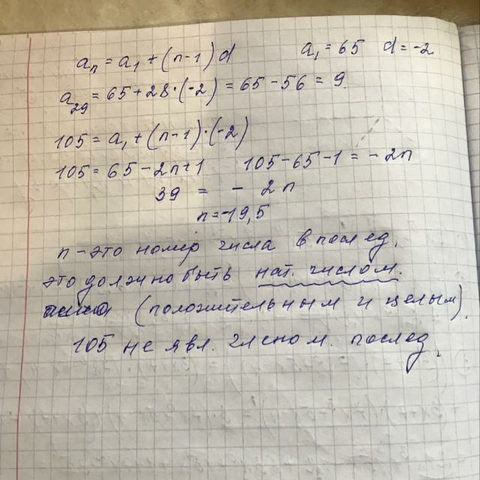 aₙ = a₁ + (n-1) d    a₁ = 65  d = -2
a₂₉ = 65 + 28 · (-2) = 65 - 56 = 9.
105 = a₁ + (n-1) · (-2)
105 = 65 - 2n + 1    105 - 65 - 1 = - 2n
39 = - 2n
n = -19,5
n - это номер числа в послед.
это должно быть нат. числом.
(положительным и целым).
105 не явл. членом. послед.